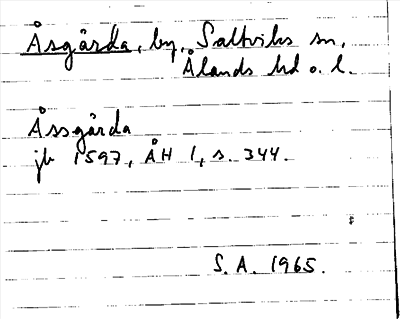 Åsgårda, by, Saltviks sn,
Ålands hd o. l.
Åssgårda
jb 1597, ÅH 1, s. 344.
S. A. 1965.